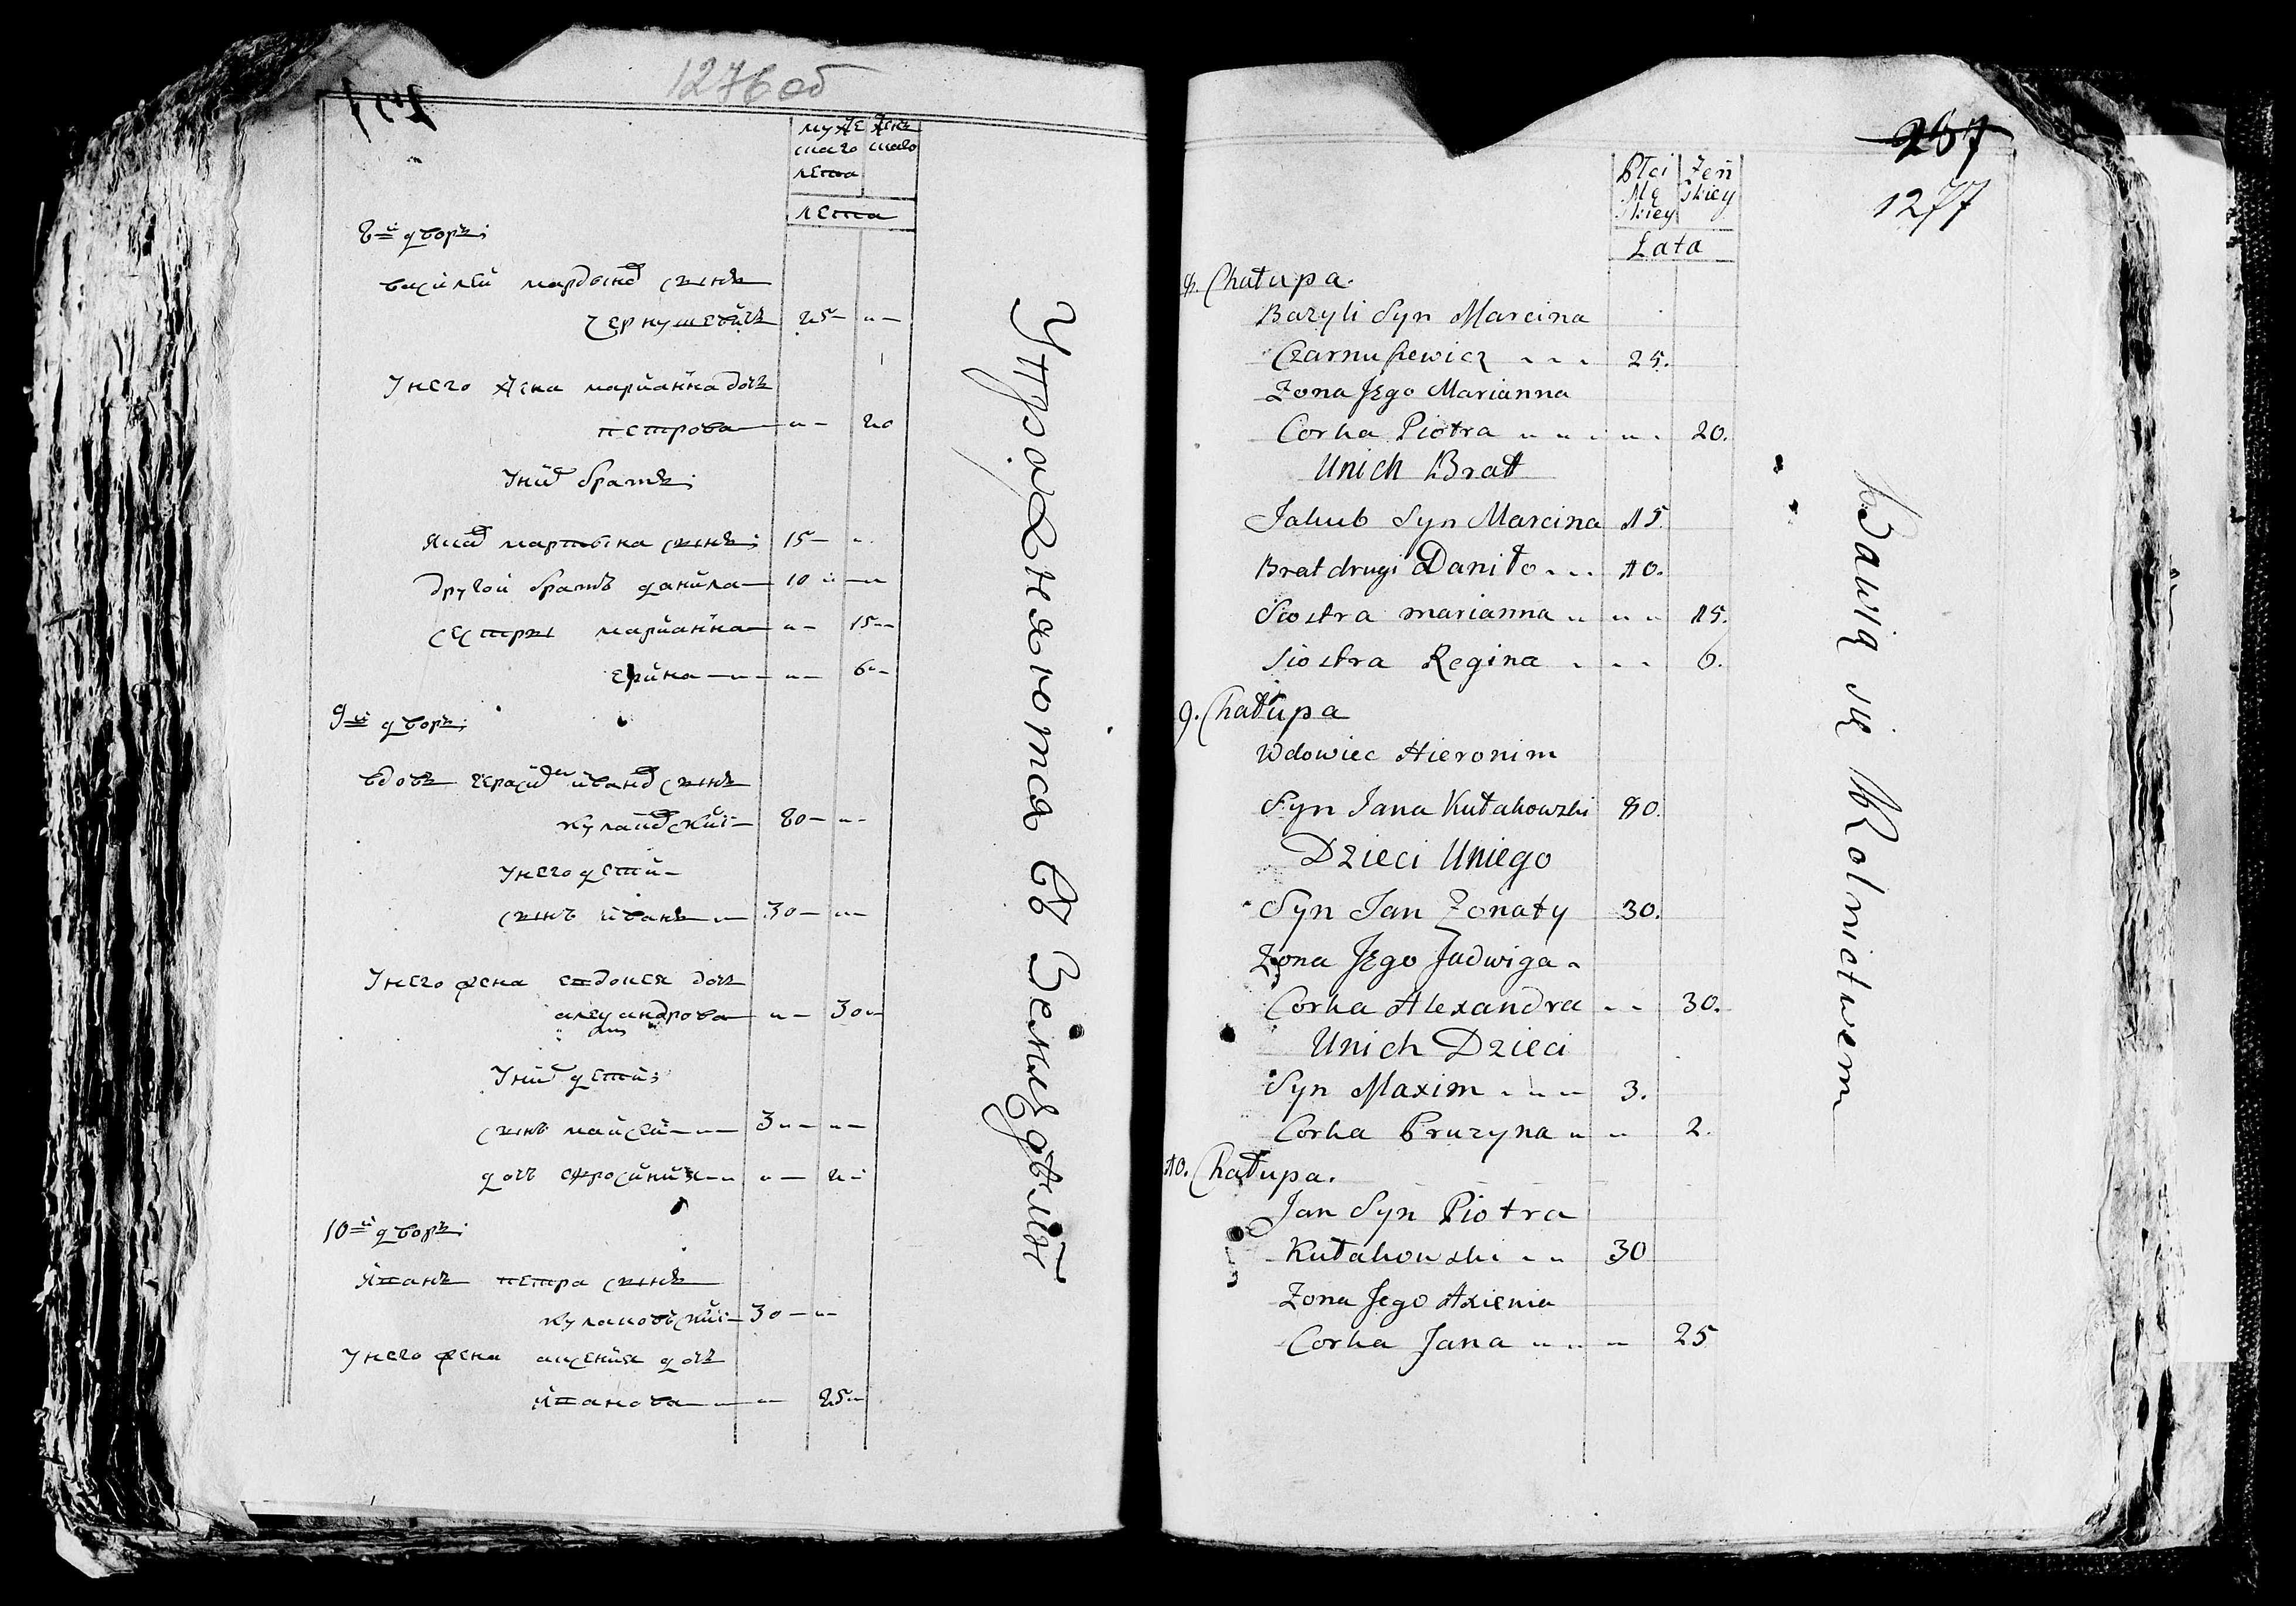 1276 об
муже жен
скаго скаго
лета
лета
8й дворъ:
василей мардына сынъ
чернушевичъ 25
у него жена марианна дочь
петрова 20
у них братъ:
якав мартына сынъ: 15
другой братъ данила 10
сестры марианна 15
ерина 6
9й дворъ:
вдовъ герасим ивана сынъ
80
у него дети
сынъ иванъ 30
у него жена евдокея дочь
александрова 30
у них дети:
сынъ майсей 3
дочь ефросиния 2
10й дворъ:
петра сынъ
кулаковский 30
у него жена аксения дочь
25
Упражняются въ Земледѣлiи
267
1277
Płci Żeń
Mę skiey
skiey
Lata
8. Chałupa.
Bazyli Syn Marcina
Czarnuszewicz 25.
Zona Jego Marianna
Corka Piotra 20.
Unich Bratt
Jakub Syn Marcina 15
Brat drugi Daniło 10.
Siostra marianna 15.
Siostra Regina 6.
9. Chałupa
Wdowiec Hieronim
Syn Jana Kułakowski 80.
Dzieci Uniego
Syn Jan Żonaty 30.
Zona Jego Jadwiga
Corka Alexandra 30.
Unich Dzieci
Syn Maxim 3.
Corka Pruzyna 2.
10. Chałupa.
Jan Syn Piotra
Kułakowski 30
Zona Jego Axienia
Corka Jana 25
bawią się Rolnictwem